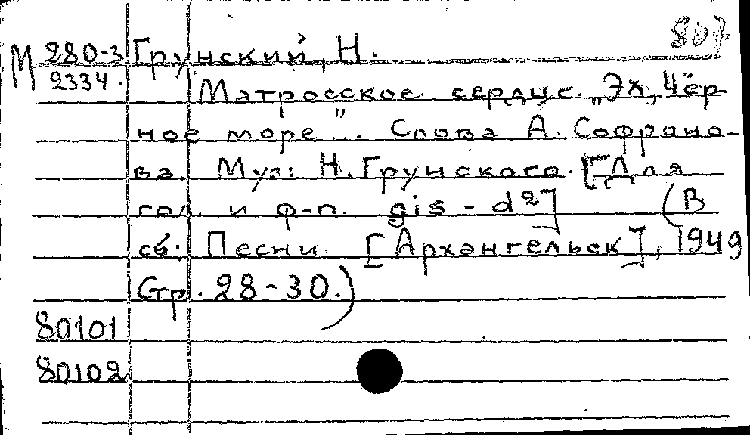 807
М 280-3 Грунский, Н.
2334. Матросское сердце. „Эх, Чёр-
ное море". Слова А. Софроно-
ва. Муз: Н. Грунского. [Для
гол. и ф-п. gis - d²] (В
сб. Песни. [Архангельск], 1949
Стр. 28-30.)
80101
80102